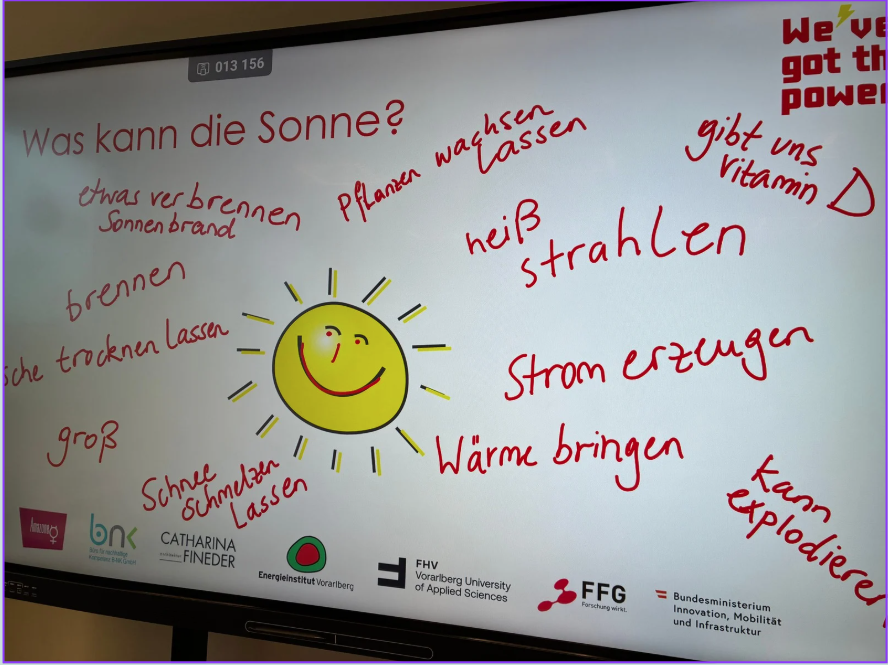 013 156
We've
got th
power
Was kann die Sonne?
etwas verbrennen
Sonnenbrand
Pflanzen wachsen
lassen
gibt uns
Vitamin D
heiß
strahlen
brennen
sche trocknen lassen
Strom erzeugen
groß
Wärme bringen
Schnee
schmelzen
lassen
kann
explodieren
amazone
bnk
Büro für nachhaltige
Kompetenz B-NK GmbH
CATHARINA
FINEDER
Energieinstitut Vorarlberg
FHV
Vorarlberg University
of Applied Sciences
FFG
Forschung wirkt.
Bundesministerium
Innovation, Mobilität
und Infrastruktur